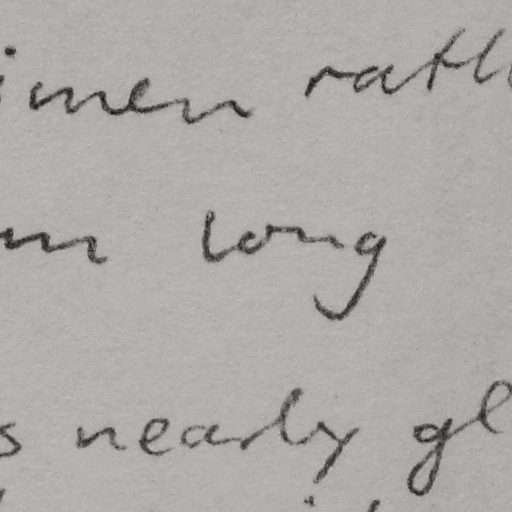 imen rath
m long
s nearly gl